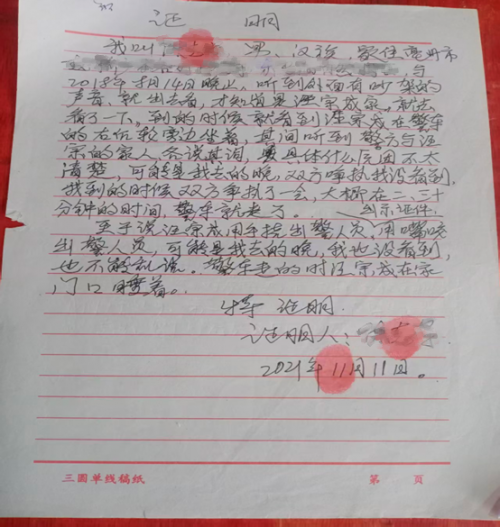 证 明
我叫 男、汉族，家住亳州市
与
2018年 月14日晚上，听到外面有吵架的
声音，就出去看，才知道是汪宗成家，就去
看了一下。到的时候就看到汪宗成在警车
的右后轮旁边坐着，其间听到警方与汪
宗的家人 其词，具体什么原因不太
清楚，可能是我去的晚，双方 我没看到，
我到的时候双方争执了一会，大概在二、三十
分钟的时间，警车就走了。
出示证件、
至于说汪宗成用手抓出警人员、用嘴咬
出警人员，可能是我去的晚，我也没看到，
也不能乱说。警车走的时汪宗成在家
门口 着。
特证明
证明人：
2021年11月11日。
三圆单线稿纸 第 页